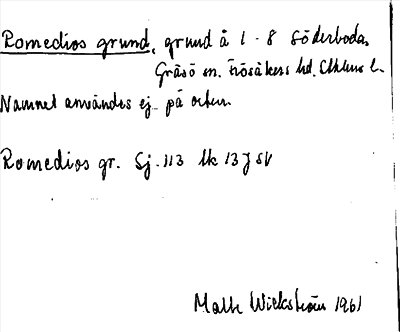 Romedios grund, grund å 1-8 Söderboda,
Gräsö sn. Frösåkers hd. Sthlms l.
Namnet användes ej på orten.
Romedios gr. Sj. 113 lk 13J SV
Wickström 1961